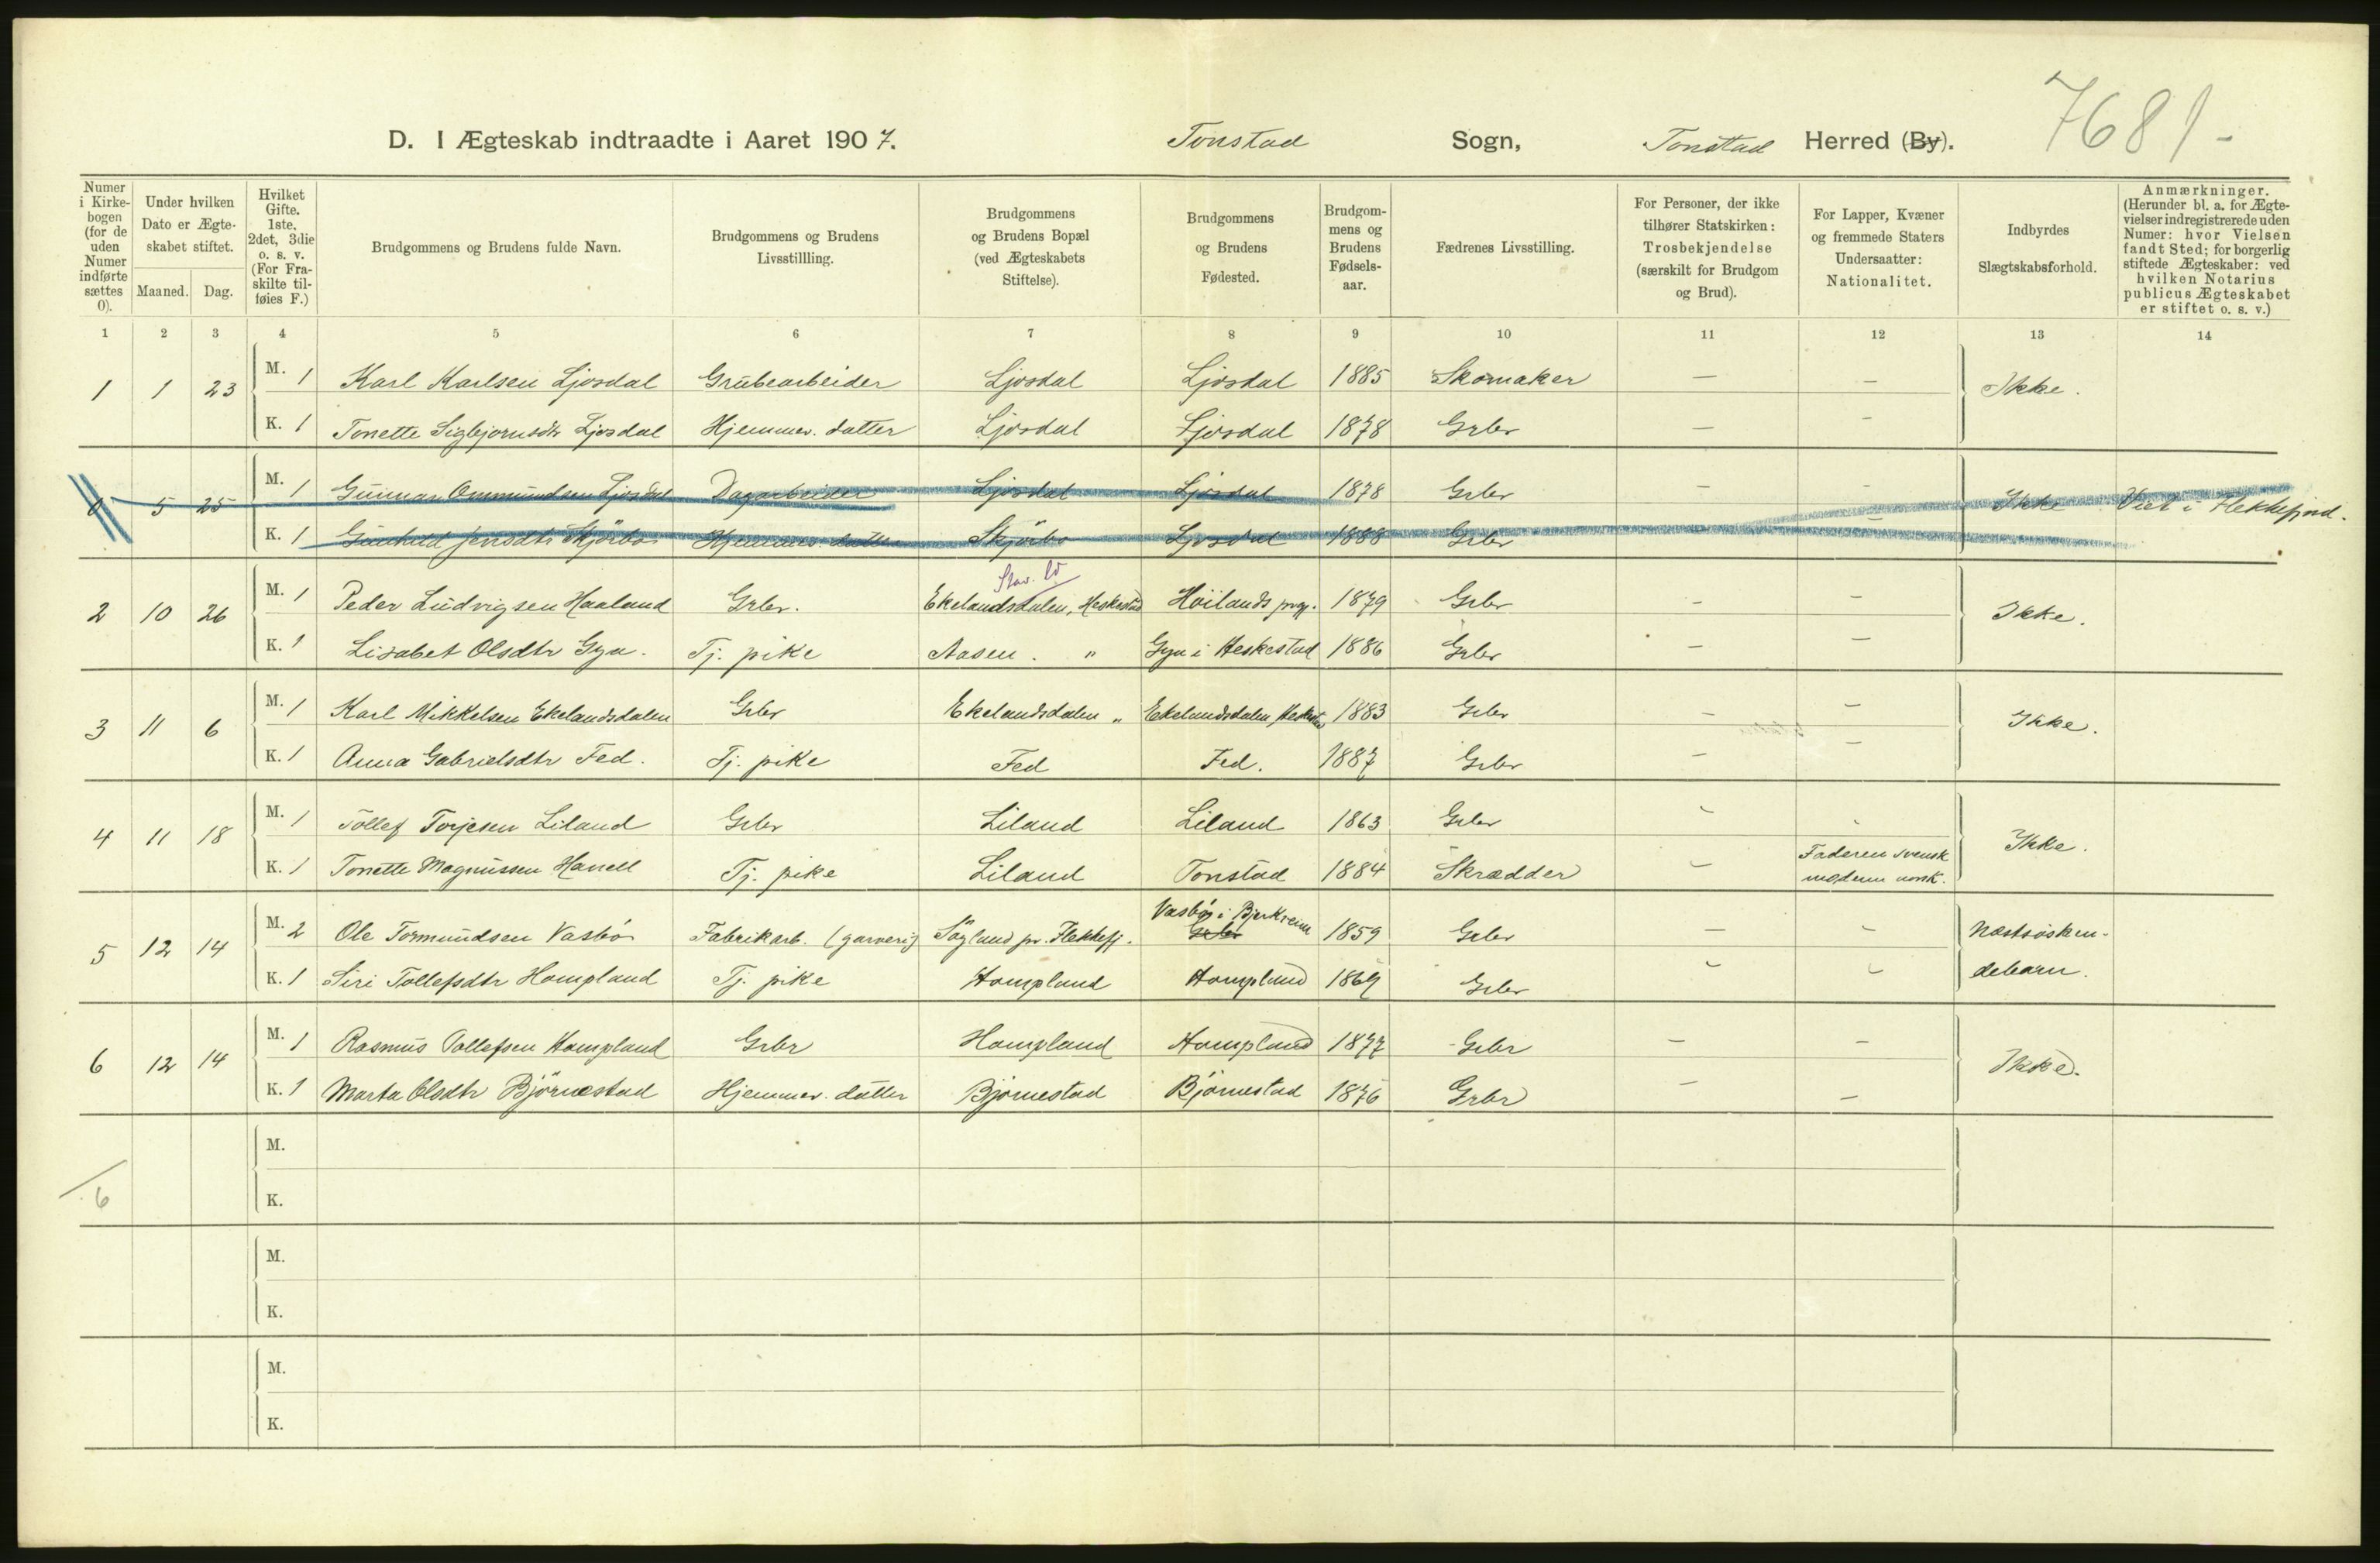 7681-
D. I Ægteskab indtraadte i Aaret 1907. Tonstad Sogn, Tonstad Herred (By).
Numer i Kirkebogen (for de uden Numer indførte sættes 0).
Under hvilken Dato er Ægteskabet stiftet.
Maaned. Dag.
Hvilket Gifte. 1ste, 2det, 3die o. s. v. (For Fraskilte tilføies F.)
Brudgommens og Brudens fulde Navn.
Brudgommens og Brudens Livsstillling.
Brudgommens og Brudens Bopæl (ved Ægteskabets Stiftelse).
Brudgommens og Brudens Fødested.
Brudgommens og Brudens Fødselsaar.
Fædrenes Livsstilling.
For Personer, der ikke tilhører Statskirken: Trosbekjendelse (særskilt for Brudgom og Brud).
For Lapper, Kvæner og fremmede Staters Undersaatter: Nationalitet.
Indbyrdes Slægtskabsforhold.
Anmærkninger. (Herunder bl. a. for Ægtevielser indregistrerede uden Numer: hvor Vielsen fandt Sted; for borgerlig stiftede Ægteskaber: ved hvilken Notarius publicus Ægteskabet er stiftet o. s. v.)
1 2 3 4 5 6 7 8 9 10 11 12 13 14
1 1 23 M. 1 Karl Karlsen Ljosdal Grubearbeider Ljosdal Ljosdal 1885 Skomaker — — Ikke.
K. 1 Tonette Sigbjornsdtr Ljosdal Hjemmev. datter Ljosdal Ljosdal 1878 Grbr — —
0 5 25 M. 1 Gunnar Ommundsen Ljosdal Dagarbeider Ljosdal Ljosdal 1878 Grbr — — Ikke Viet i Flekkefjord.
K. 1 Gunhild Jensdtr Skjörbo Hjemmev. datter Skjörbo Ljosdal 1888 Grbr — —
Stav.
2 10 26 M. 1 Peder Ludvigsen Haaland Grbr. Ekelandsdalen, Heskestad Höilands prg. 1879 Grbr — — Ikke.
K. 1 Lisabet Olsdtr Gya. Tj. pike Aasen. " Gya i Heskestad 1886 Grbr — —
3 11 6 M. 1 Karl Mikkelsen Ekelandsdalen Grbr Ekelandsdalen " Ekelandsdalen, Heskestad 1883 Grbr — — Ikke.
K. 1 Anna Gabrielsdtr Fed. Tj. pike Fed Fed. 1887 Grbr — —
4 11 18 M. 1 Tollef Torjesen Liland Grbr Liland Liland 1863 Grbr — — Ikke.
K. 1 Tonette Magnussen Hanell Tj. pike Liland Tonstad 1884 Skrædder — Faderen svensk
moderen norsk.
Vasbö i Bjerkreim
5 12 14 M. 2 Ole Tormundsen Vasbö Fabrikarb. (garveri) Sögland pr. Flekkefj. Grbr 1859 Grbr — — Næstsösken-
K. 1 Siri Tollefsdtr Hompland Tj. pike Hompland Hompland 1869 Grbr — — debarn.
6 12 14 M. 1 Rasmus Tollefsen Hompland Grbr Hompland Hompland 1877 Grbr — — Ikke.
K. 1 Marta Olsdtr Björnestad Hjemmev. datter Bjornestad Björnestad 1876 Grbr — —
M.
6 K.
M.
K.
M.
K.